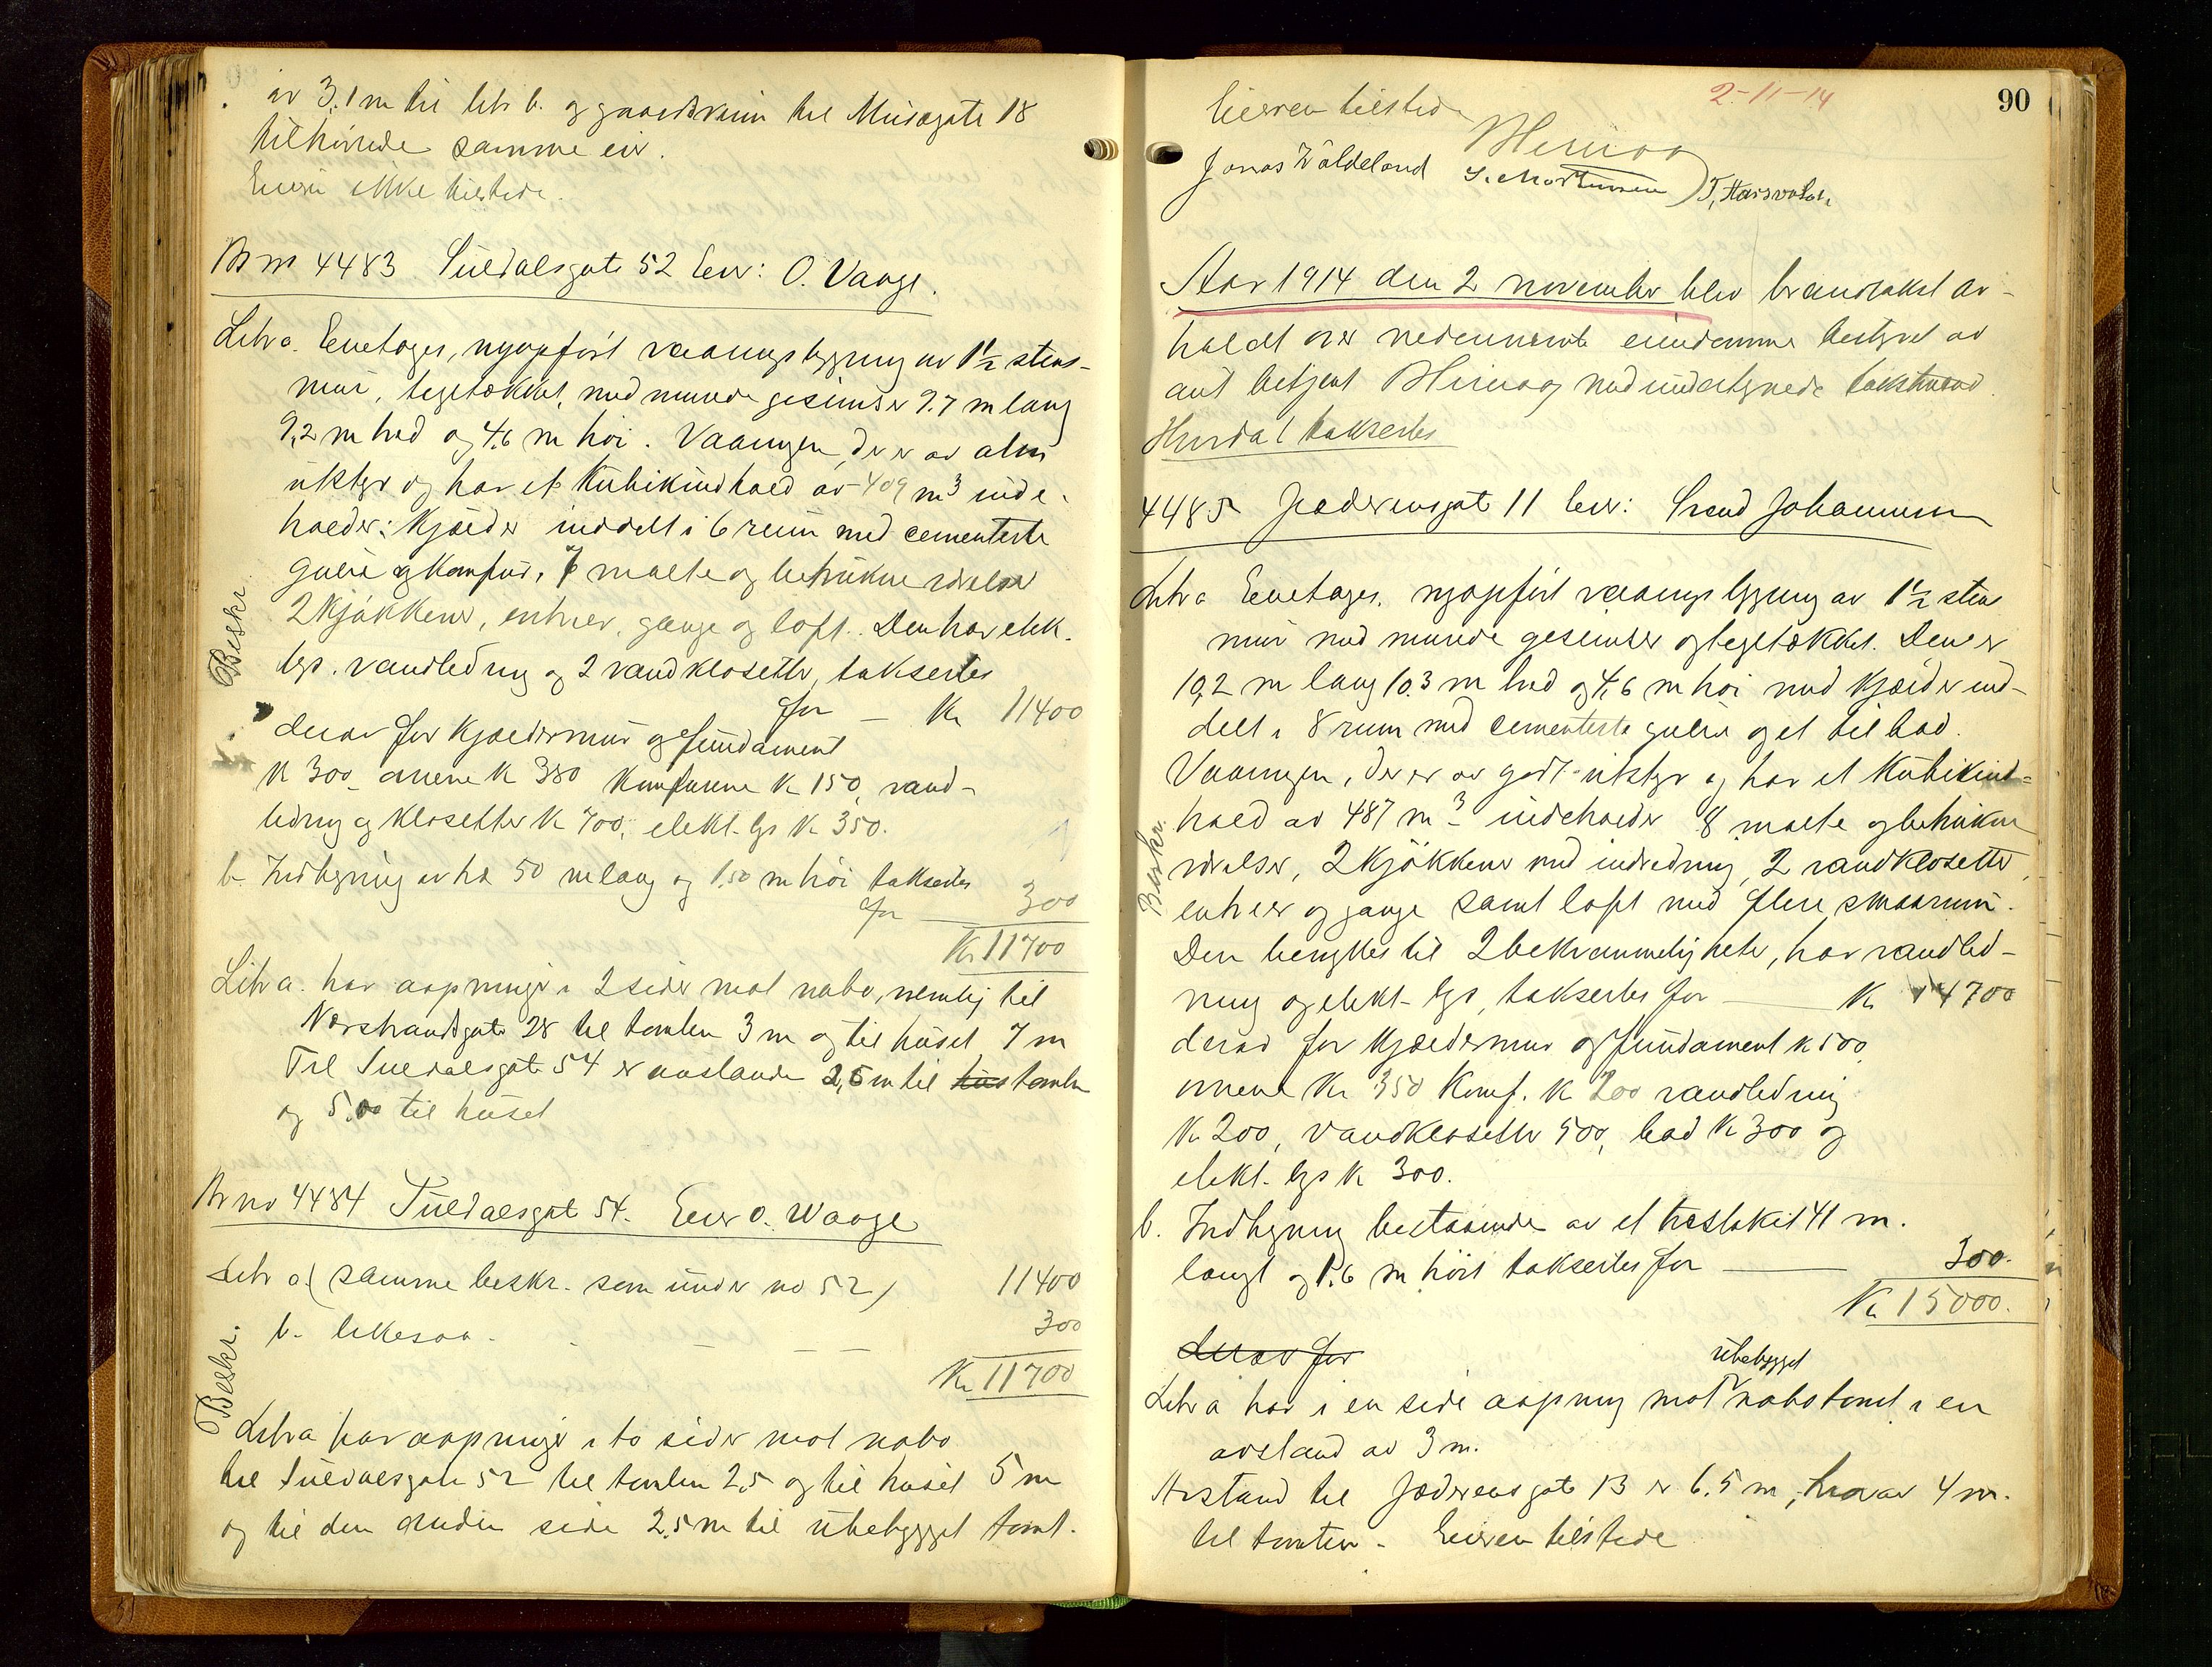 av 3,1 m til litr b. og gaardsrum til Musegate 18
tilhørende samme eier.
Eieren ikke tilstede.
Br no 4483 Suldalsgate 52 Eier: O. Vaage.
Litr a. Enetages, nyopført vaaningsbygning av 1 1/2 stens-
mur, tegltækket, med murede gesimser 9.7 m lang
9,2 m bred og 4,6 m høi. Vaaningen, der er av alm
utstyr og har et Kubikindhold av 409 m3 inde-
holder: Kjælder inddelt i 6 rum med cementerte
gulve og komfur, 7 malte og betrukne værelser
2 Kjøkkener, entreer, gange og loft. Den har elek.
lys. vandledning og 2 vandklosetter, takseres
for — Kr 11400
Beskr.
derav for Kjældermur og fundament
Kr 300, ovnene Kr 380 Komfurene Kr 150, vand-
ledning og klosetter Kr 700, elekt. lys Kr 350.
b. Indhegning av træ 50 m lang og 1,50 m høi takseres
for — 300
Kr 11700
Litr a. har aapninger i 2 sider mot nabo, nemlig til
Nærstrandsgate 28 til tomten 3 m og til huset 7 m
Til Suldalsgate 54 er avstanden 2,5 m til hus tomten
og 5.00 til huset
Br no 4484 Suldalsgate 54. Eier O. Waage
Litr a (samme beskr. som under no 52) 11400
b. likesaa. — — — 300
Kr 11700
Beskr.
Litr a har aapninger i to sider mot nabo
til Suldalsgate 52 til tomten 2,5 og til huset 5 m
og til den anden side 2,5 m til ubebygget tomt.
2-11-14
90
Eieren tilstede
Jonas Wäldeland S. Mortensen
Aar 1914 den 2 november blev brandtakst av-
holdt over nedennævnte eiendomme bestyret av
amt betjent med undertegnede takstmænd.
Hvorda l takseres
4485 Jæderensgate 11 Eier: Svend Johannessen
Litr a Enetages, nyopført vaaningsbygning av 1 1/2 stens
mur med murede gesimser og teglstækket. Den er
10,2 m lang 10.3 m bred og 4,6 m høi med Kjælder ind-
delt i 8 rum med cementerte gulve og et til bad.
Vaaningen, der er av godt utstyr og har et Kubikind-
hold av 487 m3 indeholder 8 malte og betrukne
værelser, 2 Kjøkkener med indredning, 2 vandklosetter,
entreer og gange samt loft med flere smaarum.
Den benyttes til 2 bekvemmeligheter, har vandled-
ning og elekt. lys, takseres for — Kr 14700
Beskr.
derav for Kjældermur og fundament Kr 500
ovnene Kr 350 Komf. Kr 200 vandledning
Kr 200, vandklosetter 500, bad Kr 300 og
elekt. lys Kr 300.
b. Indhegning bestaaende av et træstakit 41 m.
langt og 1,6 m høit takseres for — 300.
Kr 15000.
derav for
Litr a har i en side aapning mot ubebygget nabotomt i en
avstand av 3 m.
Avstand til Jæderensgate 13 er 6,5 m, hvorav 4 m.
til tomten. Eieren tilstede